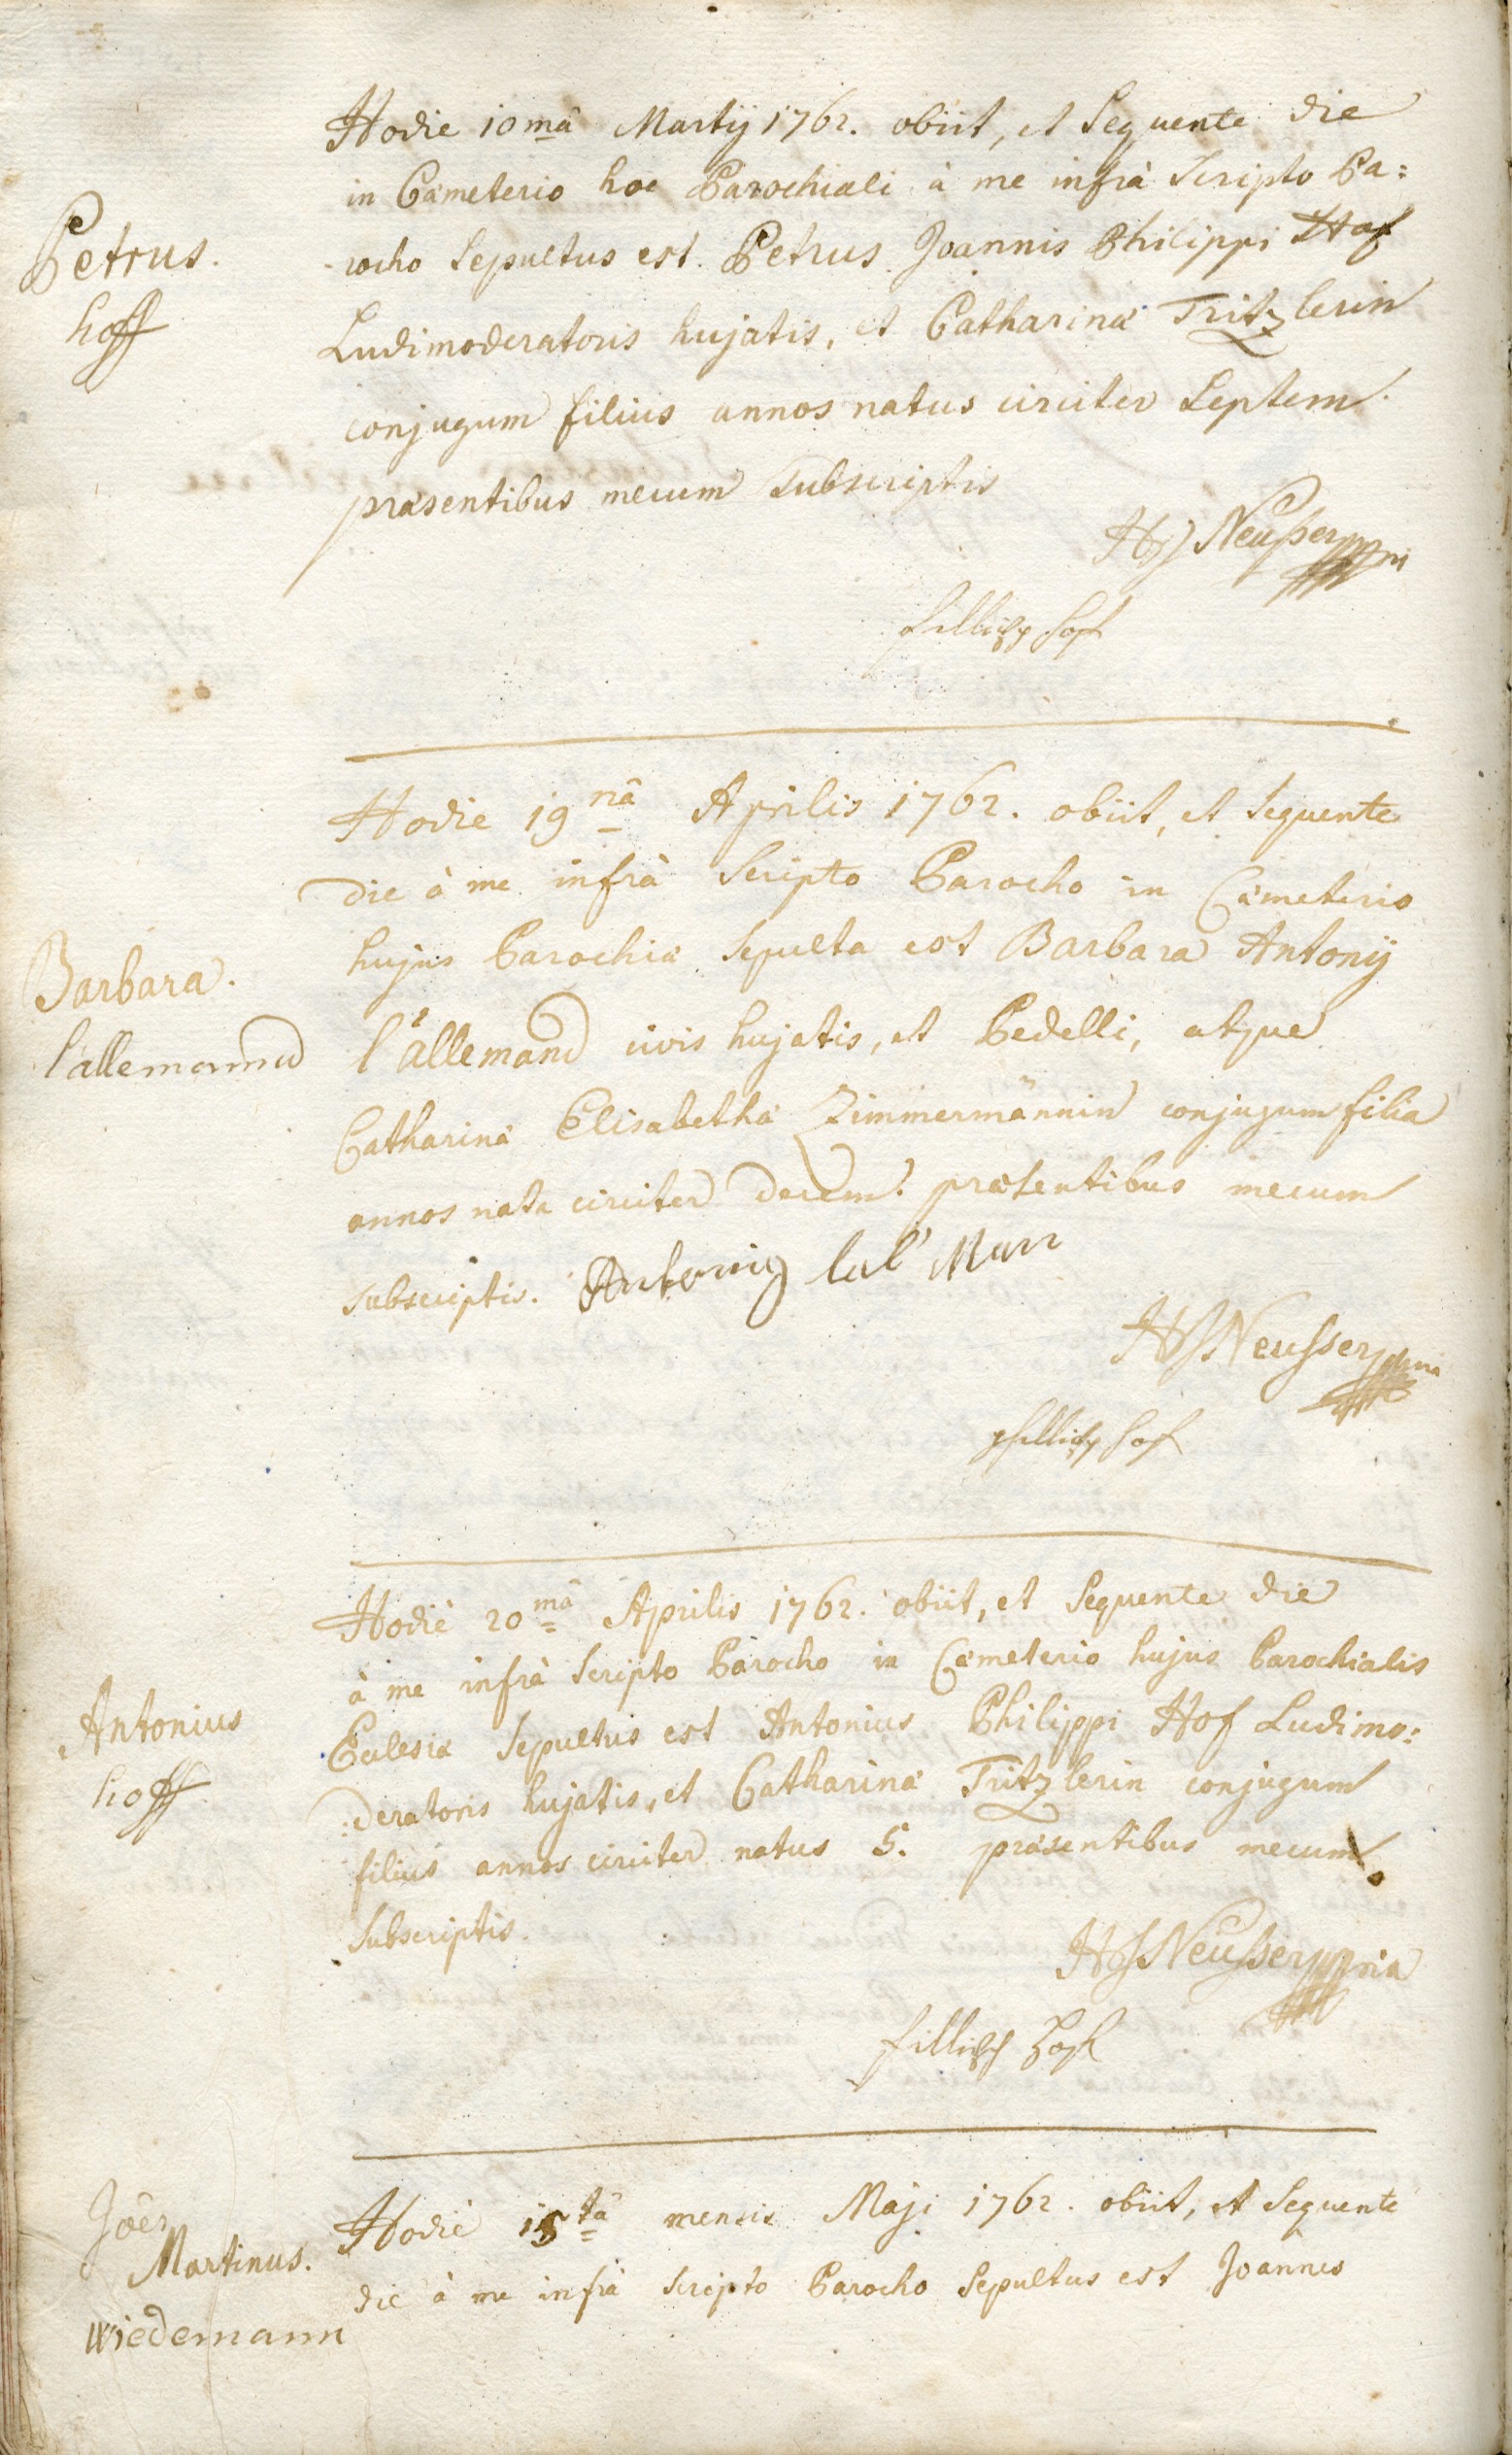 Hodie 10mâ Martij 1762. obiit, et Sequente die
in Cæmeterio hoc Parochiali à me infrà Scripto Pa=
rocho Sepultus est. Petrus Joannis Philippi Hof
Petrus.
hoff
Ludimoderatoris hujatis, et Catharinæ Tritzlerin
conjugum filius annos natus circiter Septem.
præsentibus mecum Subscriptis
HJ Neusser
fillipp Hof
Hodie 19nâ Aprilis 1762. obiit, et Sequente
die à me infrà Scripto Parocho in Cæmeterio
hujus Parochiæ Sepulta est Barbara Antonij
Barbara.
l'allemannd
l'allemand civis hujatis, et Pedelli, atque
Catharinæ Elisabethæ Zimmermännin conjugum filia
annos nata circiter decem. præsentibus mecum
subscriptis. Antonig lal' Man
HJ Neusser
phillipp Hof
Hodie 20mâ Aprilis 1762. obiit, et Sequente die
à me infrà Scripto Parocho in Cæmeterio hujus Parochialis
Eclesiæ Sepultus est Antonius Philippi Hof Ludimo=
Antonius
hoff
=deratoris hujatis, et Catharinæ Tritzlerin conjugum
filius annos circiter natus 5. præsentibus mecum
Subscriptis.
HJ Neüsser mpria
fillipp Hof
Hodie 15tâ mensis Maji 1762. obiit, et Sequente
Joês
Martinus.
Wiedemann
die à me infrà Scripto Parocho Sepultus est Joannes